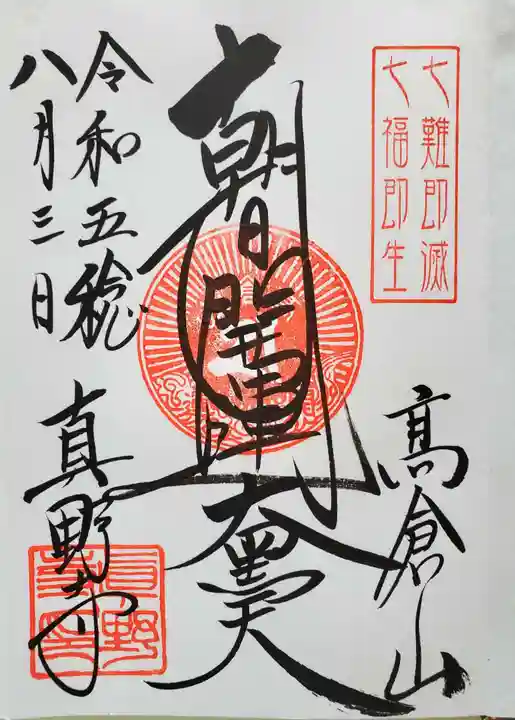 七難即滅
七福即生
高倉山
朝日開運大黑天
令和五稔
八月三日
真野寺